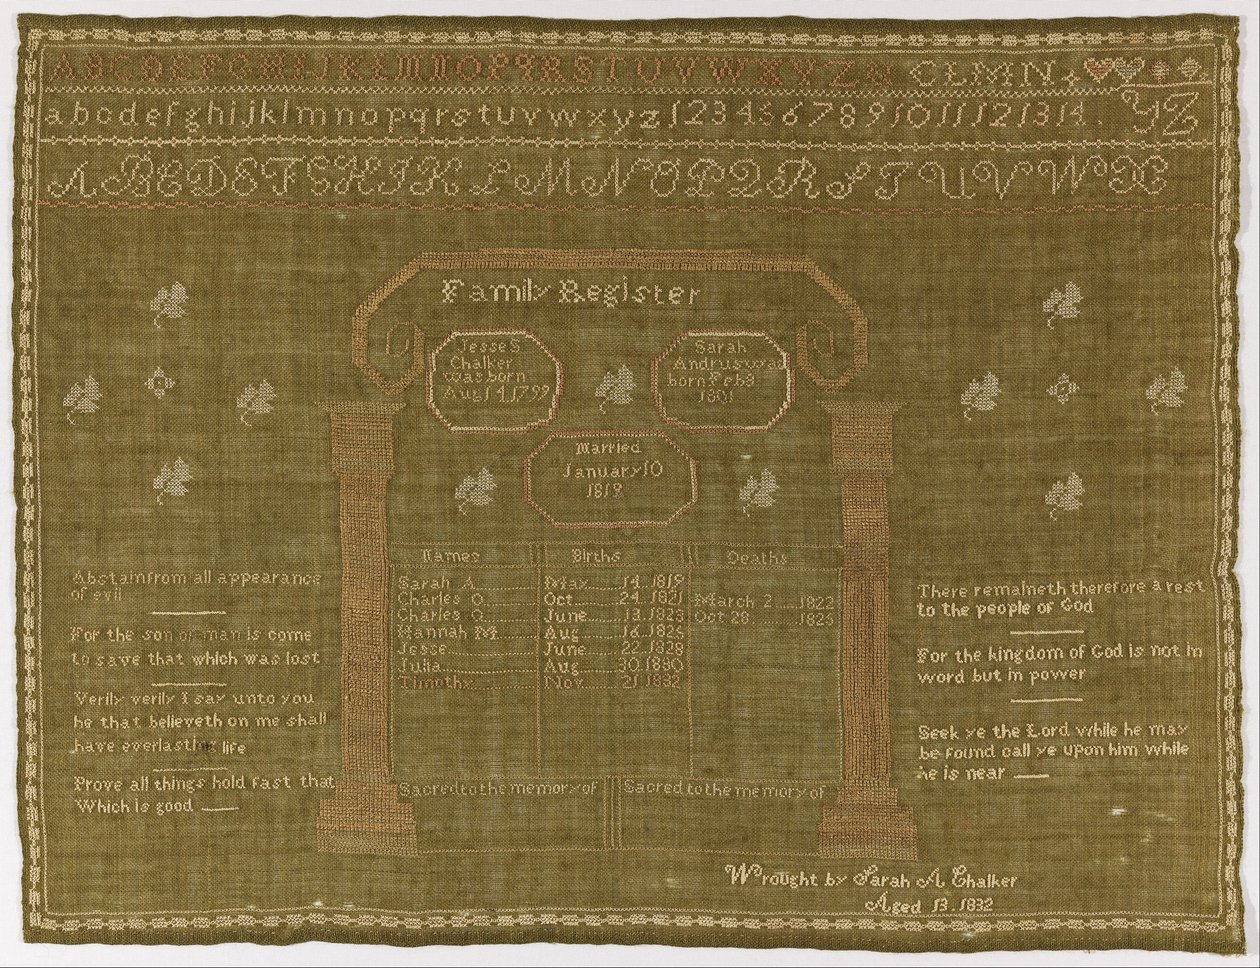 A B C D E F G H I J K L M N O P Q R S T U V W X Y Z & C L M N
a b c d e f g h i j k l m n o p q r s t u v w x y z 1 2 3 4 5 6 7 8 9 10 11 12 13 14 . Y Z
A B C D E F G H I K L M N O P Q R S T U V W X
Family Register
Jesse S
Chalker
was born
Aug 14, 1799
Sarah
Andrus was
born Feb 3
1801
Married
January 10
1819
Names Births Deaths
Sarah A May 14 1819
Charles O Oct 24 1821 March 2 1822
Charles O June 13 1823 Oct 28 1825
Hannah M Aug 16 1825
Jesse June 22 1828
Julia Aug 30 1830
Timothy Nov 21 1832
Sacred to the memory of Sacred to the memory of
Abstain from all appearance
of evil
For the son of man is come
to save that which was lost
Verily verily I say unto you
he that believeth on me shall
have everlasting life
Prove all things hold fast that
Which is good
There remaineth therefore a rest
to the people of God
For the kingdom of God is not in
word but in power
Seek ye the Lord while he may
be found call ye upon him while
he is near
Wrought by Sarah A Chalker
Aged 13. 1832